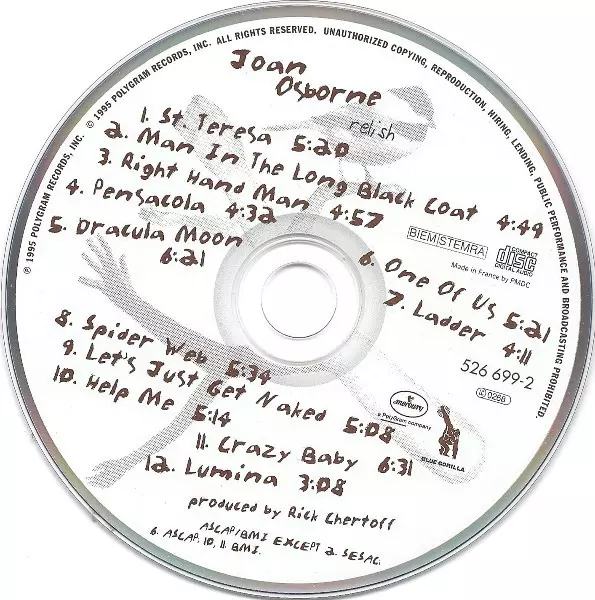 ℗ 1995 POLYGRAM RECORDS, INC. © 1995 POLYGRAM RECORDS, INC. ALL RIGHTS RESERVED. UNAUTHORIZED COPYING, REPRODUCTION, HIRING, LENDING, PUBLIC PERFORMANCE AND BROADCASTING PROHIBITED.
Joan
Osborne
relish
1. St. Teresa 5:20
2. Man In The Long Black Coat 4:49
3. Right Hand Man 4:57
4. Pensacola 4:32
5. Dracula Moon
6:21
BIEM/STEMRA
COMPACT
disc
DIGITAL AUDIO
Made in France by PMDC
6. One Of Us 5:21
7. Ladder 4:11
526 699-2
8. Spider Web 5:34
9. Let's Just Get Naked 5:08
10. Help Me
5:14
11. Crazy Baby 6:31
12. Lumina 3:08
mercury
a PolyGram company
BLUE GORILLA
LC 0268
produced by Rick Chertoff
ASCAP/BMI EXCEPT 2. SESAC.
6. ASCAP. 10, 11. BMI.